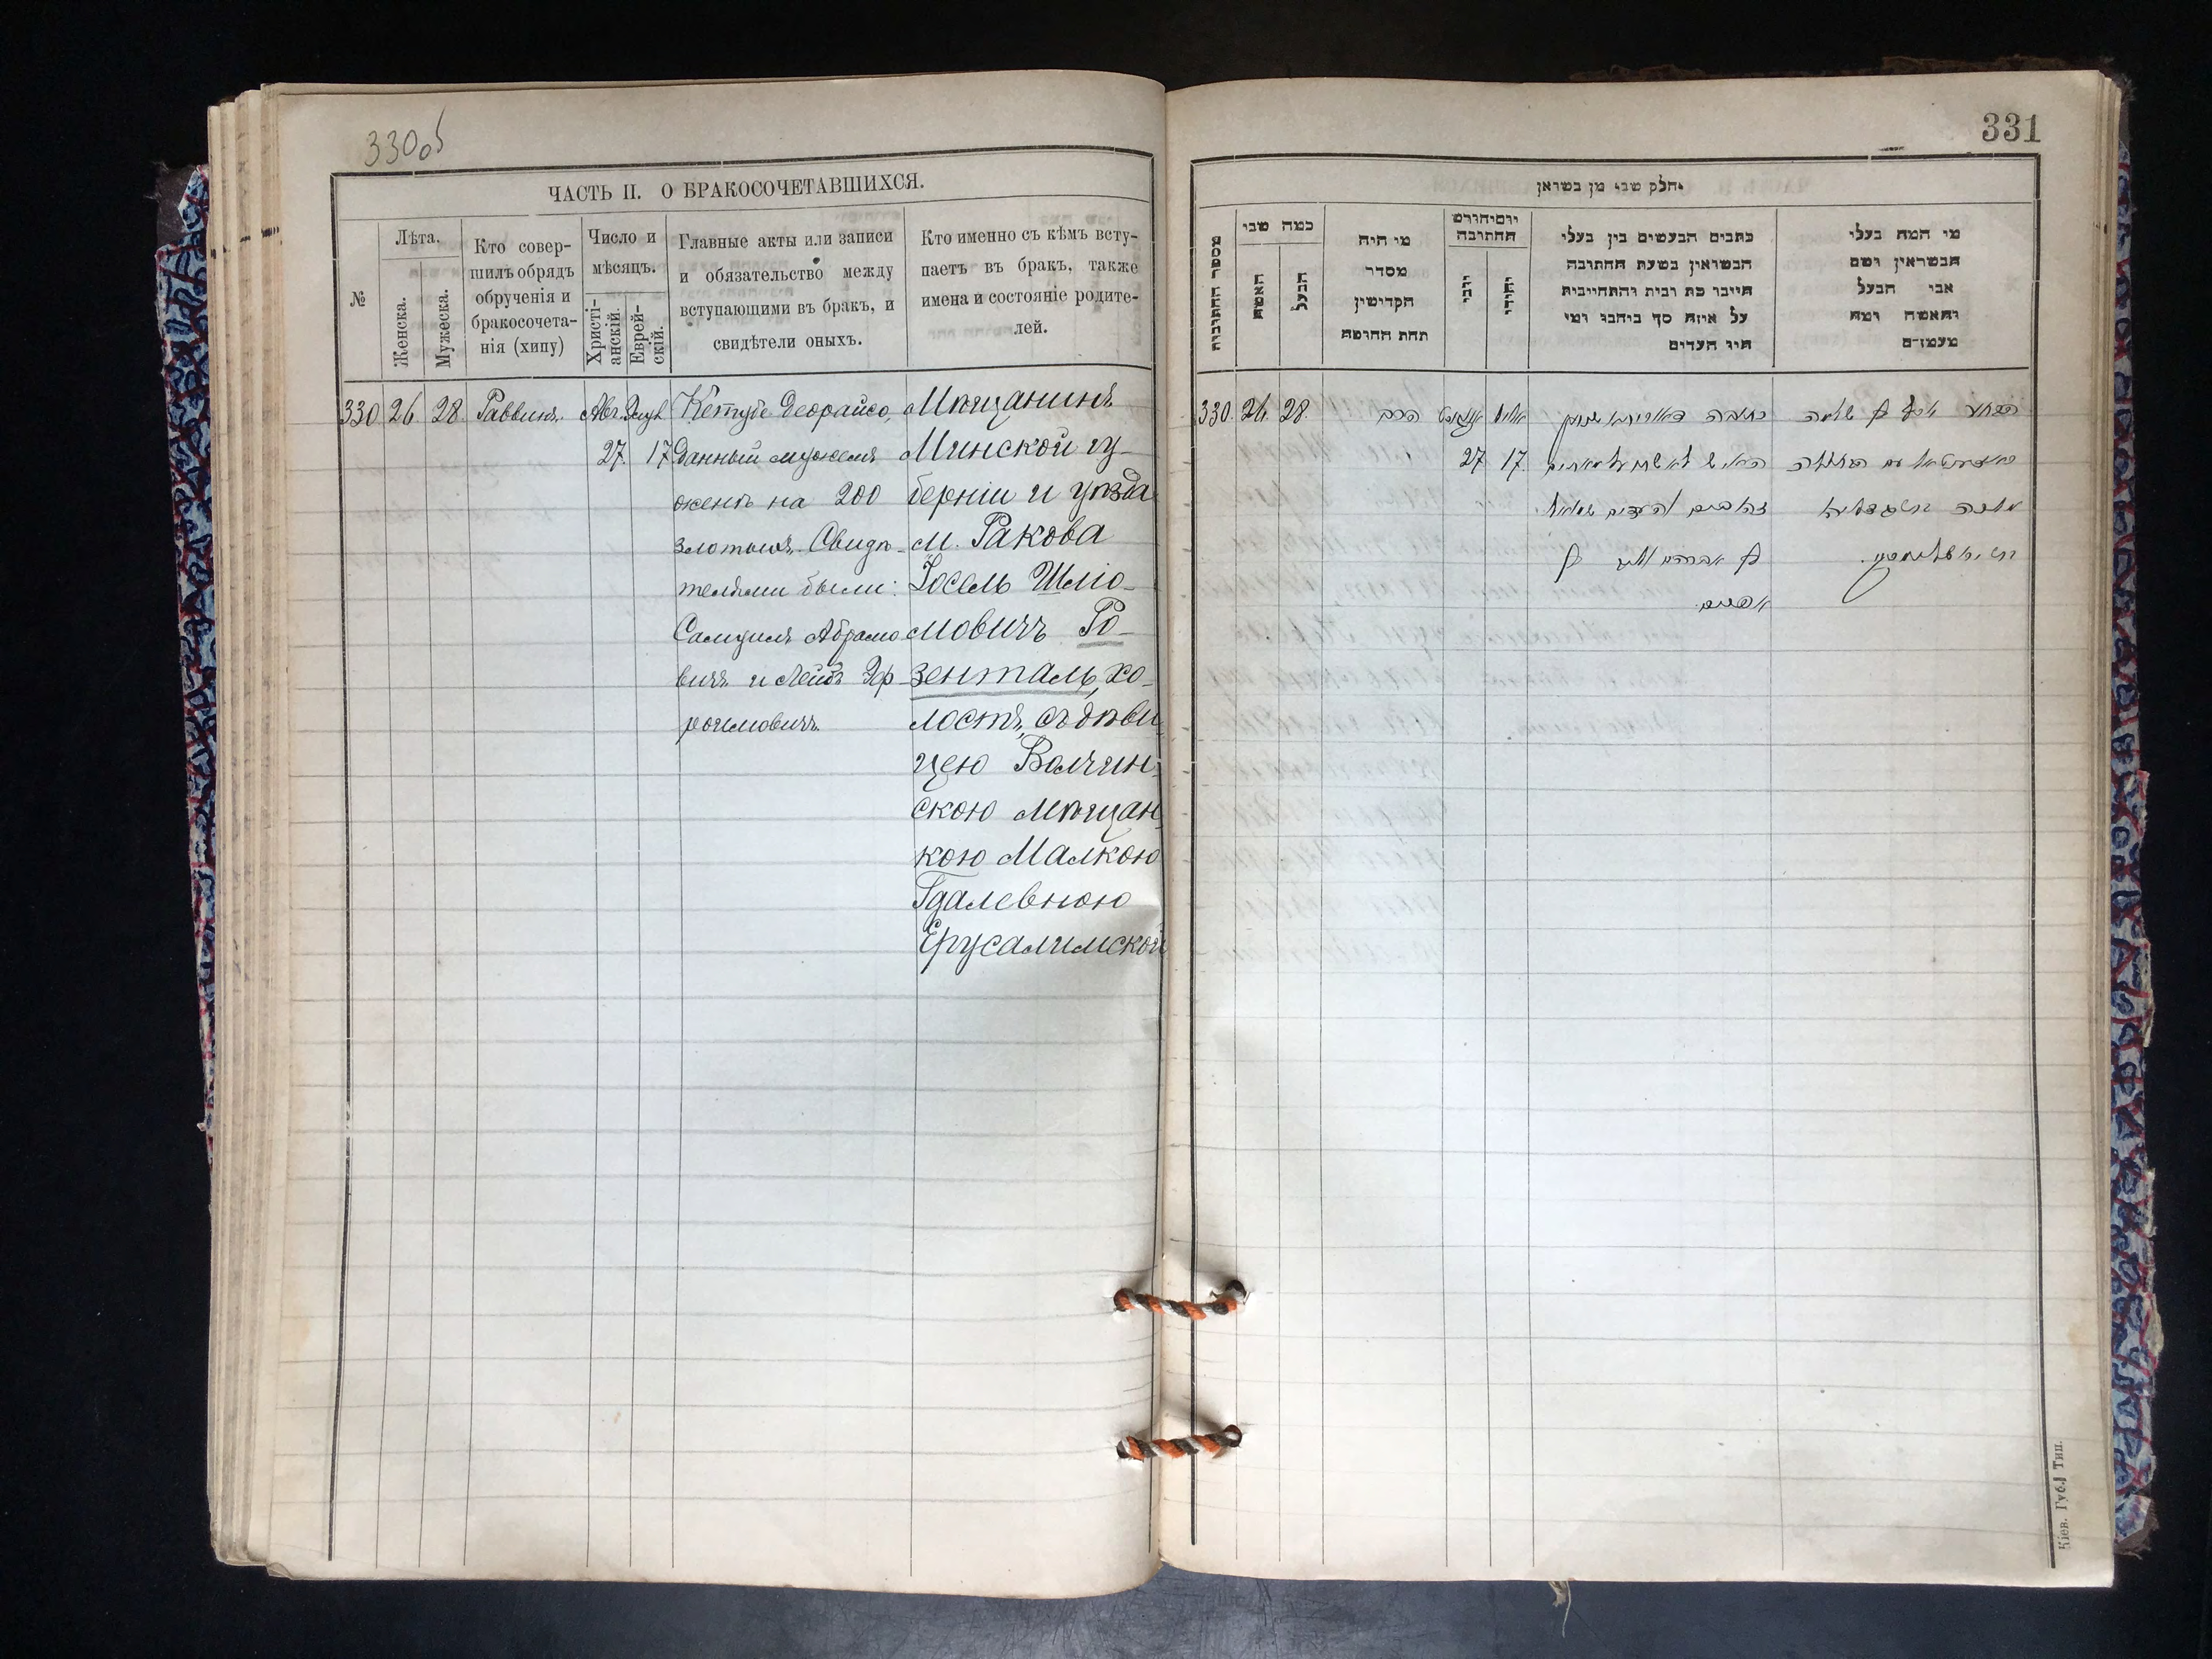 330об
ЧАСТЬ II. О БРАКОСОЧЕТАВШИХСЯ.
№
Лѣта.
Женска.
Мужеска.
Кто совер-
шилъ обрядъ
обрученія и
бракосочета-
нія (хипу)
Число и
мѣсяцъ.
Христі-
анскій.
Еврей-
скій.
Главные акты или записи
и обязательство между
вступающими въ бракъ, и
свидѣтели оныхъ.
Кто именно съ кѣмъ всту-
паетъ въ бракъ, также
имена и состояніе родите-
лей.
330. 26. 28. Раввинъ. Авг. Элулъ
27. 17
Кетубе Деорайсо,
данный мужемъ
женѣ на 200
злотыхъ. Свидѣ-
телями были:
Самуилъ Абрамо
вичъ и Лейбъ Эф
роимовичъ.
Мѣщанинъ
Минской гу-
берніи и уѣзда
м. Ракова
Іосель Шлiо-
мовичъ Ро-
зенталь, хо-
лостъ, съ дѣви
цею Волчин-
скою мѣщан
кою Малкою
Гдалевною
Ерусалимской
331
חלק שני מן נשואין
מספר החתונות
כמה שני
האשה
הבעל
מי היה
מסדר
הקדישין
תחת החופה
יום וחודש
החתונה
יוני
יהודי
כתבים הנעשים בין בעלי
הנשואין בשעת החתונה
היינו כת ובית והתחייבית
על איזה סך ביהבו ומי
היו העדים
מי המה בעלי
הנשואין ושם
אבי הבעל
והאשה ומה
מעמדם
330. 26. 28. הרב אלול
27 17.
כתובה דאורייתא
זהובים
אפרים.
שלמה
מלכה
Кіев. Губ. Тип.